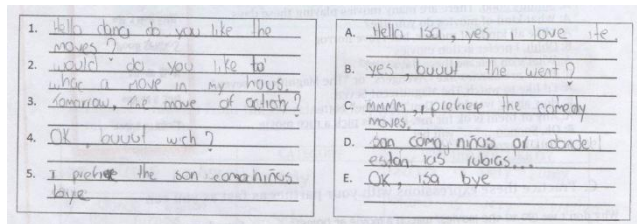 1. Hello dany do you like the
moves?
2. would do you like to
whac a move in my hous.
3. Tomorrow, the move of action?
4. OK, buuut wich?
5. I prefiere the son comahiñas
bye
A. Hello Isa, yes i love ite.
B. yes, buuut the went?
C. MMMM, i prefiere the comedy
moves.
D. Son como niñas or donde
estan las rubias...
E. OK, isa bye